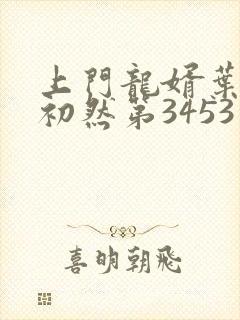 上門龍婿葉
初然第3453
喜明朝飛